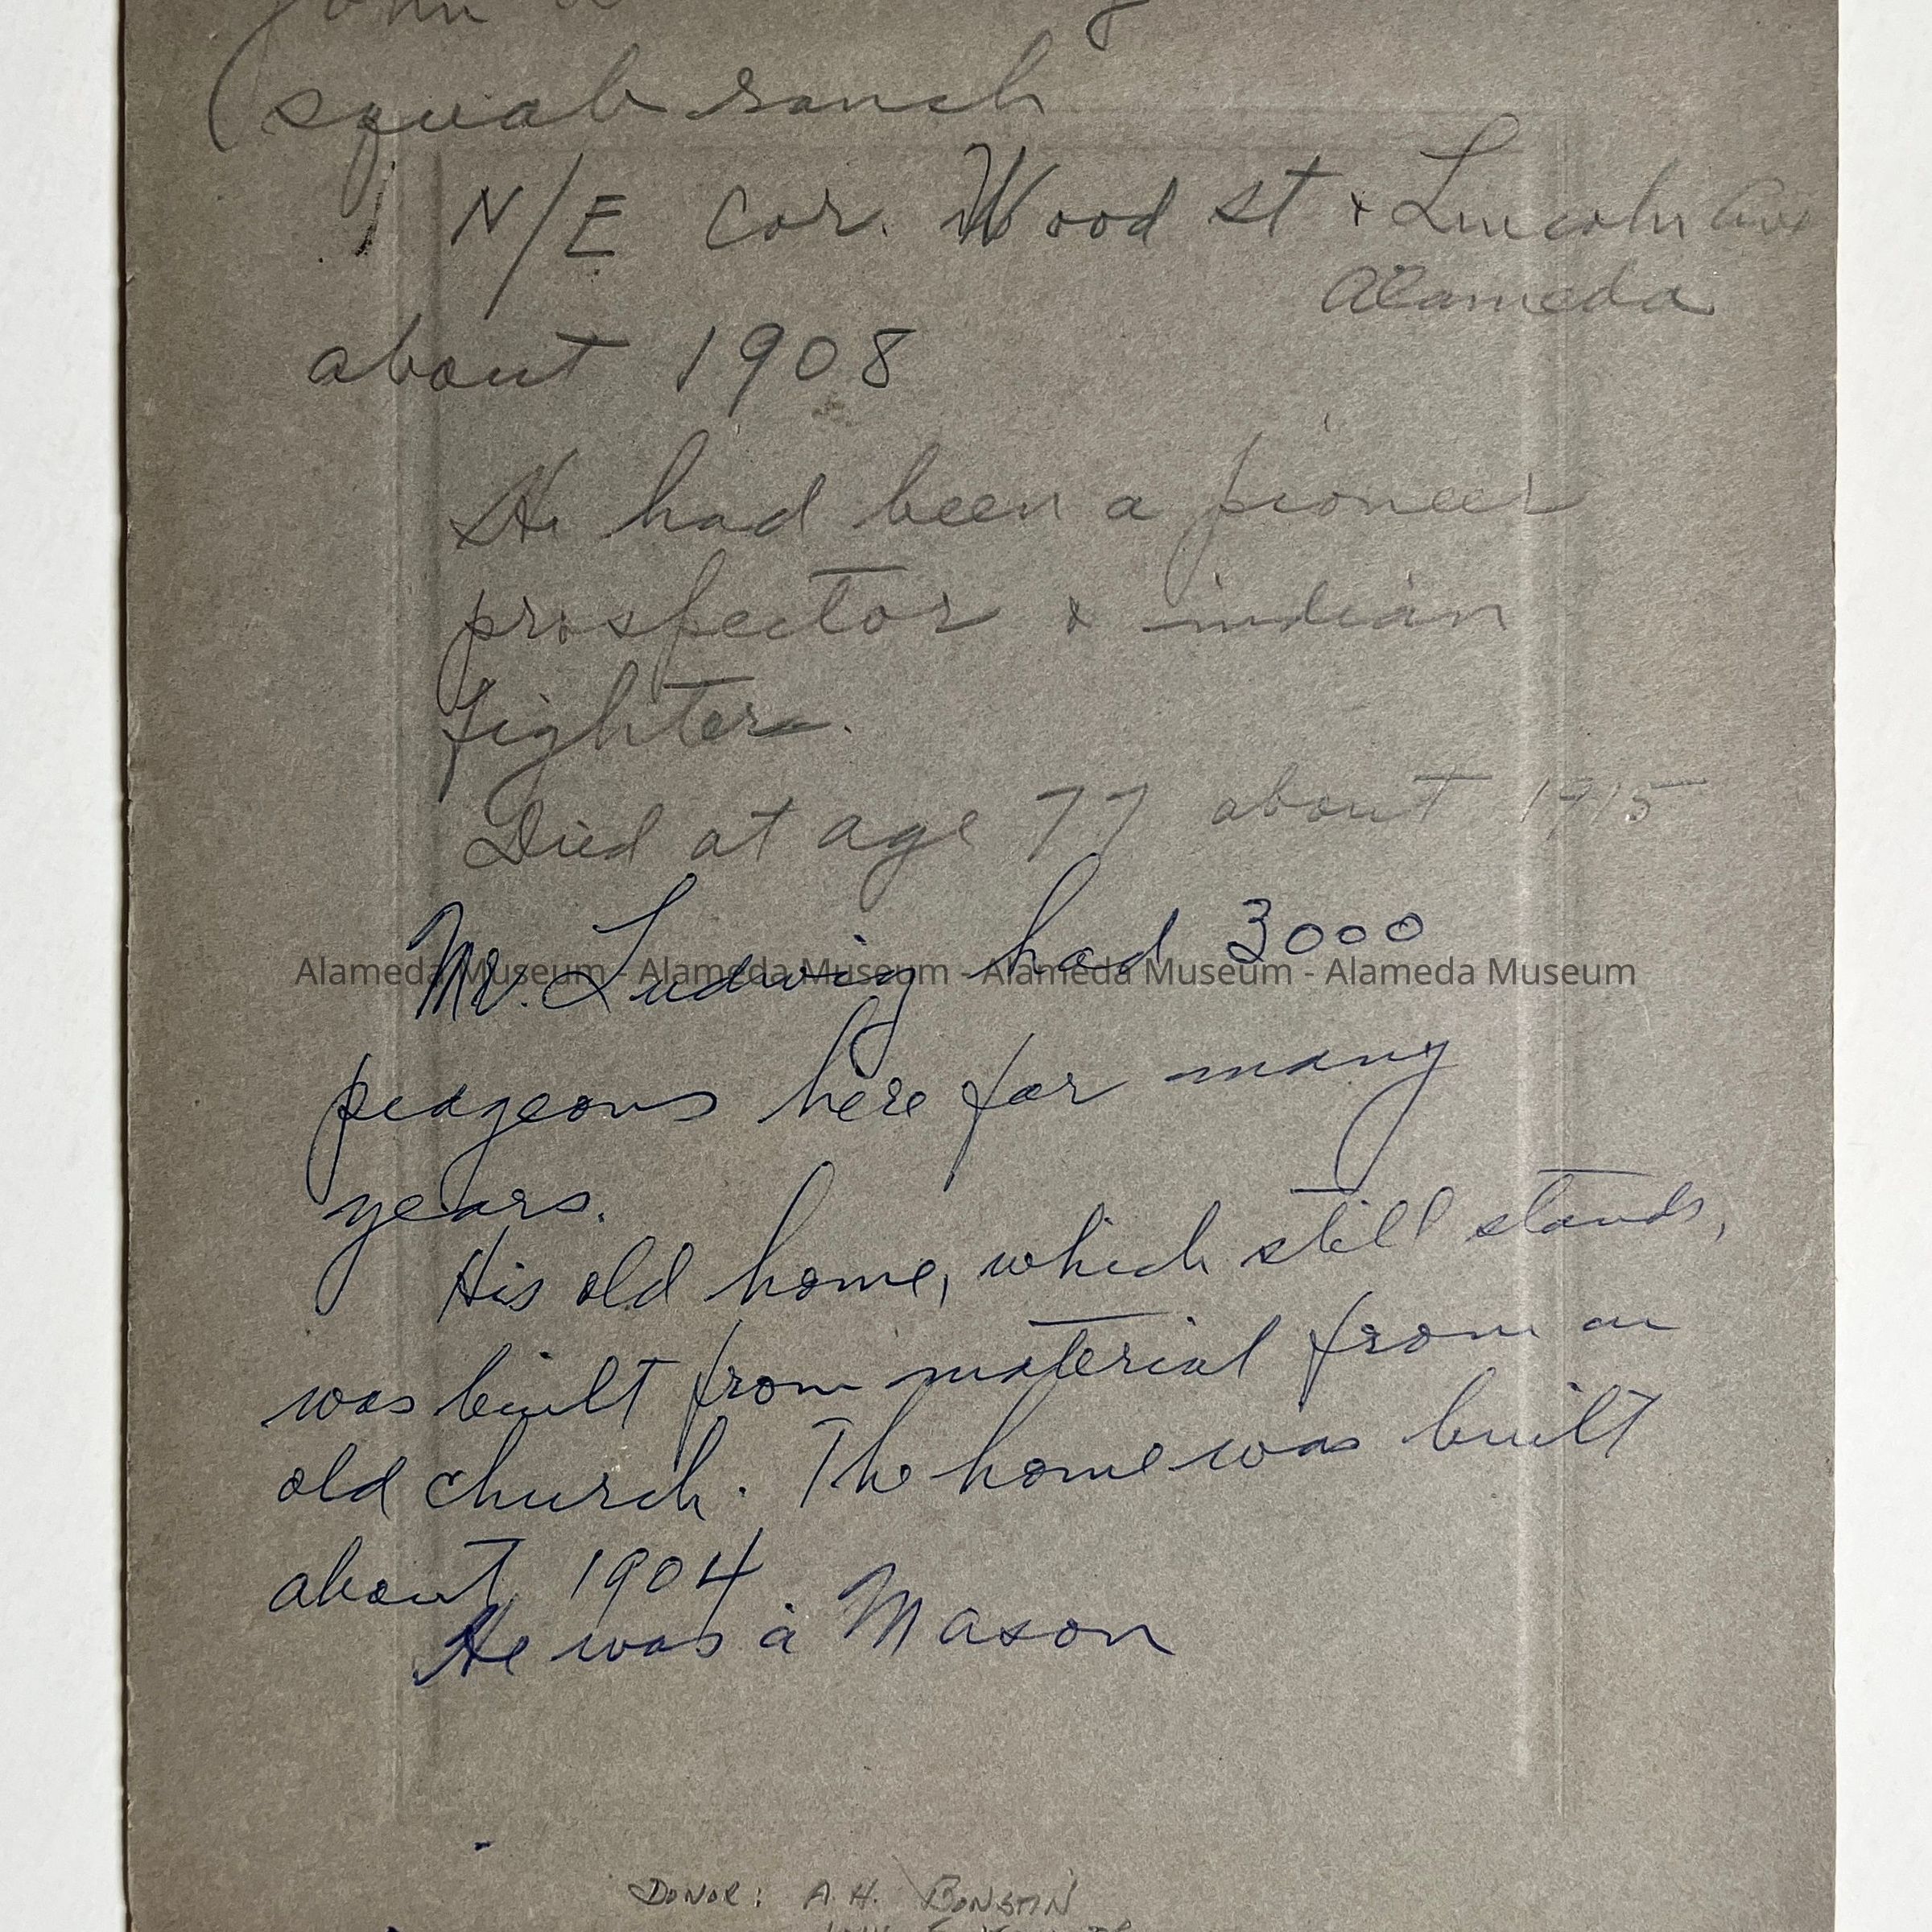 John
squab ranch
N/E Cor. Wood St & Lincoln Ave
Alameda
about 1908
He had been a pioneer
prospector & indian
fighter.
Died at age 77 about 1915
Mr. Ludwig had 3000
Alameda Museum - Alameda Museum - Alameda Museum - Alameda Museum
pidgeons here for many
years.
His old home, which still stands,
was built from material from an
old church. The home was built
about 1904
He was a Mason
DONOR: A.H.